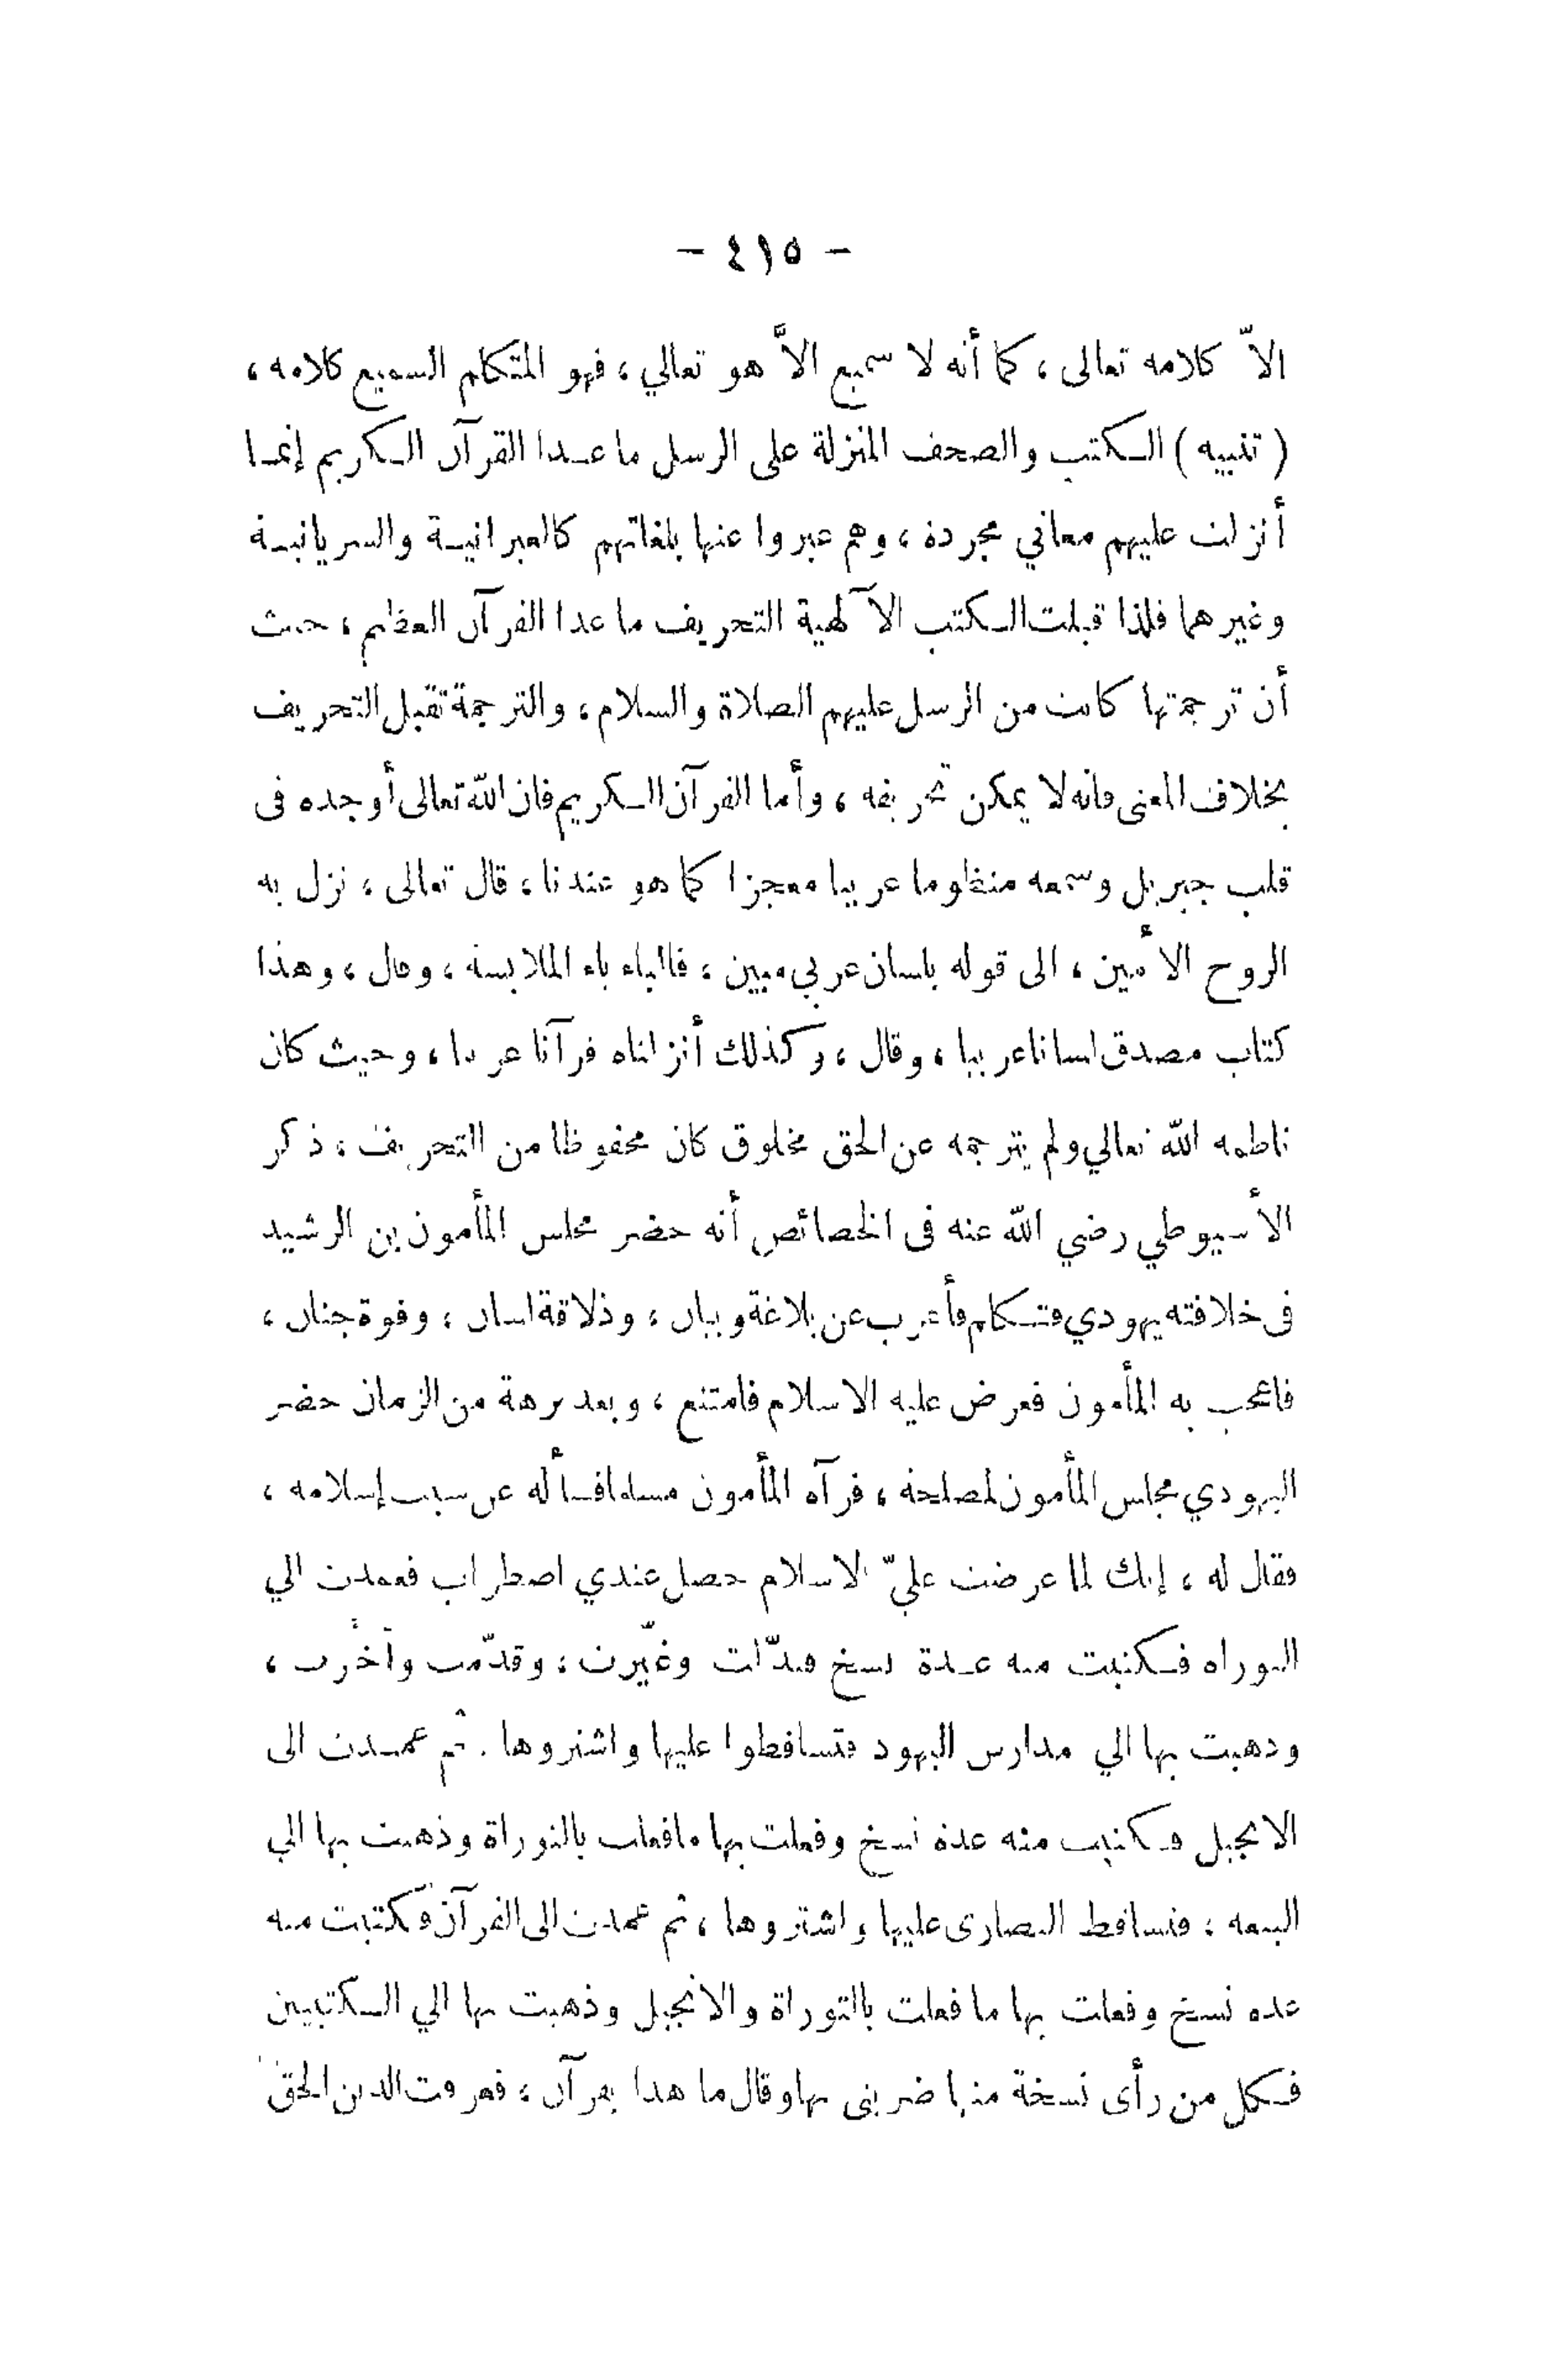 - ٤١٥ -
الاّ كلامه تعالى ، كما أنه لا سميع الاَّ هو تعالي ، فهو المتكلم السميع كلامه ،
( تنبيه ) الكتب والصحف المنزلة على الرسل ما عدا القرآن الكريم إنما
أنزلت عليهم معاني مجردة ، وهم عبروا عنها بلغاتهم كالعبرانية والسريانية
وغيرهما فلذا قبلت الكتب الآلهية التحريف ما عدا القرآن العظيم ، حيث
أن ترجمتها كانت من الرسل عليهم الصلاة والسلام ، والترجمة تقبل التحريف
بخلاف المعنى فانه لا يمكن تحريفه ، وأما القرآن الكريم فان الله تعالى أوجده فى
قلب جبريل وسمعه منظوما عربيا معجزا كما هو عندنا ، قال تعالى ، نزل به
الروح الأمين ، الى قوله بلسان عربي مبين ، فالباء باء الملابسة ، وقال ، وهذا
كتاب مصدق لسانا عربيا ، وقال ، وكذلك أنزلناه قرآنا عربيا ، وحيث كان
ناظمه الله تعالي ولم يترجمه عن الحق مخلوق كان محفوظا من التحريف ، ذكر
الأسيوطي رضي الله عنه فى الخصائص أنه حضر مجلس المأمون بن الرشيد
فى خلافته يهودي فتكلم فأعرب عن بلاغة وبيان ، وذلاقة لسان ، وقوة جنان ،
فاعجب به المأمون فعرض عليه الاسلام فامتنع ، وبعد برهة من الزمان حضر
اليهودي مجلس المأمون لمصلحة ، فرآه المأمون مسلما فسأله عن سبب إسلامه ،
فقال له ، إنك لما عرضت عليّ الاسلام حصل عندي اضطراب فعمدت الي
التوراه فكتبت منه عدة نسخ فبدّلت وغيّرت ، وقدّمت وأخّرت ،
وذهبت بها الي مدارس اليهود فتساقطوا عليها واشتروها . ثم عمدت الى
الانجيل فكتبت منه عدة نسخ وفعلت بها ما فعلت بالتوراة وذهبت بها الي
البيعه ، فتساقط النصارى عليها واشتروها ، ثم عمدت الى القرآن فكتبت منه
عده نسخ وفعلت بها ما فعلت بالتوراة والانجيل وذهبت بها الي الكتبيين
فكل من رأى نسخة منها ضربنى بها وقال ما هذا بقرآن ، فعرفت الدين الحق